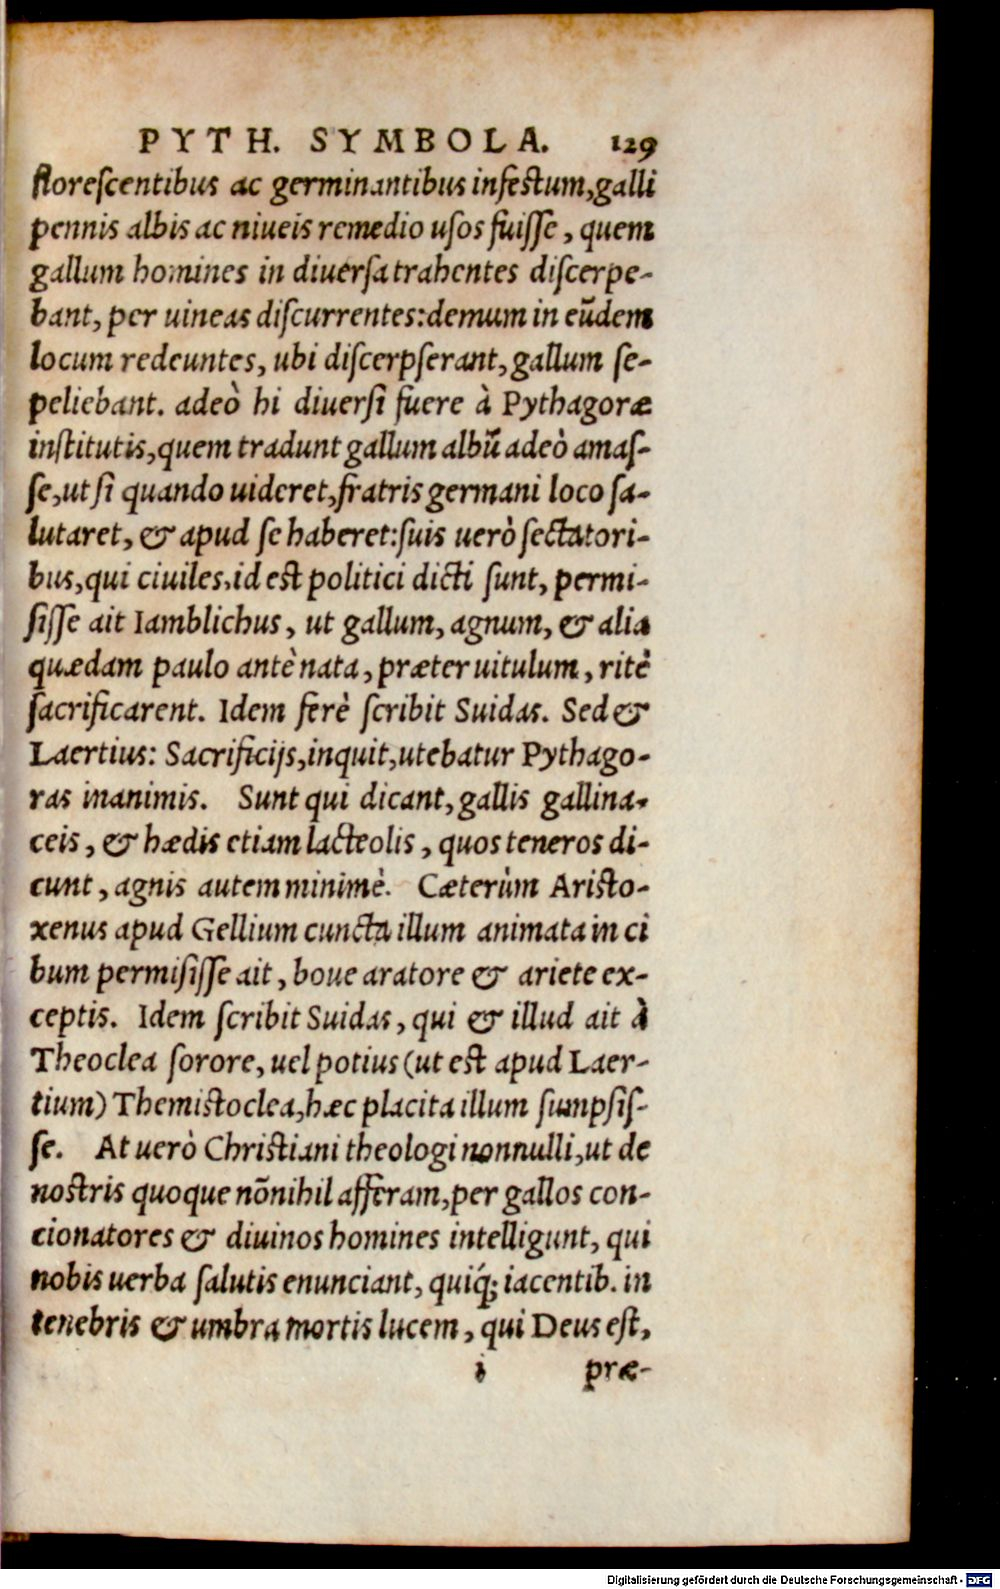 PYTH. SYMBOLA. 129
florescentibus ac germinantibus infestum, galli
pennis albis ac niueis remedio usos fuiſſe, quem
gallum homines in diuersa trahentes diſcerpe-
bant, per uineas diſcurrentes: demum in eũdem
locum redeuntes, ubi diſcerpſerant, gallum ſe-
peliebant. adeò hi diuerſi fuere à Pythagoræ
inſtitutis, quem tradunt gallum albũ adeò amaſ-
ſe, ut ſi quando uideret, fratris germani loco ſa-
lutaret, & apud ſe haberet: ſuis uerò ſectatori-
bus, qui ciuiles, id eſt politici dicti ſunt, permi-
ſiſſe ait Iamblichus, ut gallum, agnum, & alia
quædam paulo antè nata, præter uitulum, ritè
ſacrificarent. Idem ferè ſcribit Suidas. Sed &
Laertius: Sacrificijs, inquit, utebatur Pythago-
ras inanimis. Sunt qui dicant, gallis gallina-
ceis, & hædis etiam lacteolis, quos teneros di-
cunt, agnis autem minimè. Cæterùm Ariſto-
xenus apud Gellium cuncta illum animata in ci
bum permiſiſſe ait, boue aratore & ariete ex-
ceptis. Idem ſcribit Suidas, qui & illud ait à
Theoclea ſorore, uel potius (ut eſt apud Laer-
tium) Themiſtoclea, hæc placita illum ſumpſiſ-
ſe. At uerò Chriſtiani theologi nonnulli, ut de
noſtris quoque nõnihil afferam, per gallos con-
cionatores & diuinos homines intelligunt, qui
nobis uerba ſalutis enunciant, quiq́; iacentib. in
tenebris & umbra mortis lucem, qui Deus eſt,
i præ-
Digitalisierung gefördert durch die Deutsche Forschungsgemeinschaft - DFG